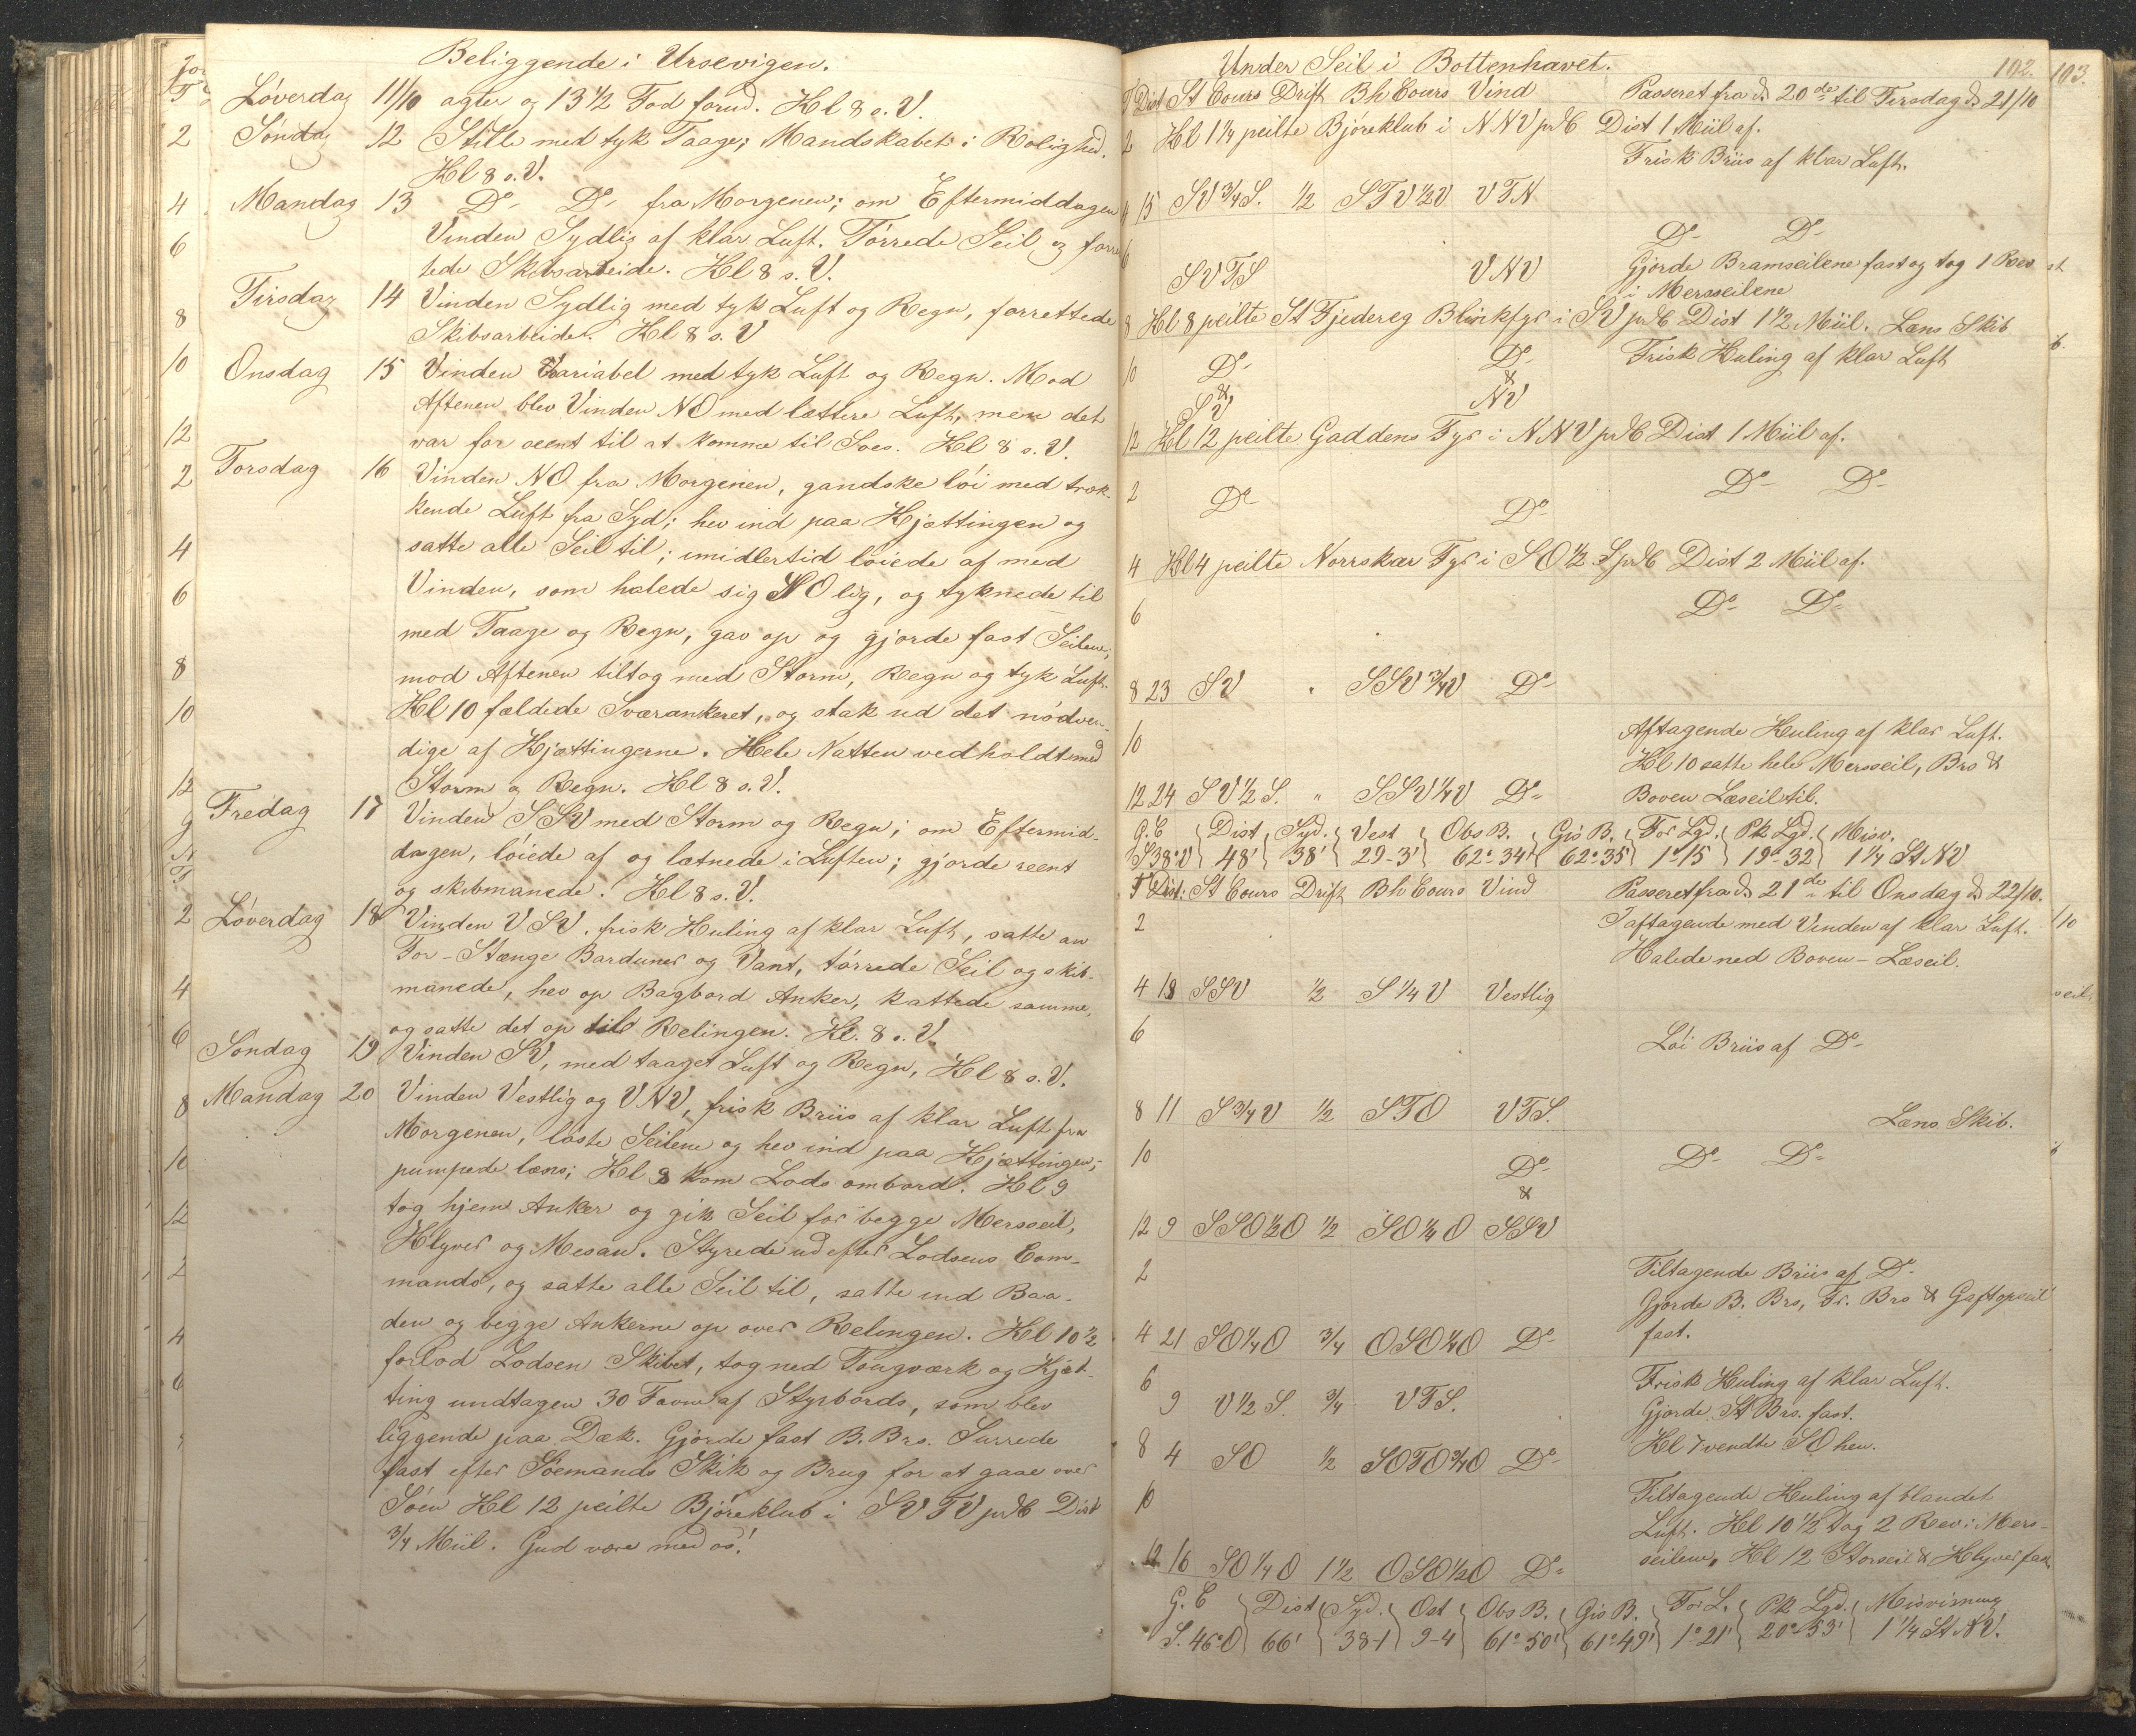 Beliggende i Ursevigen.
Løverdag 11/10 agter og 13 1/2 Fod forud. Kl 8 s. V.
Søndag 12 Stille med tyk Taage; Mandskabet i Rolighed.
Kl 8 s. V.
Mandag 13 Do Do fra Morgenen; om Eftermiddagen
Vinden Sydlig af klar Luft. Tørrede Seil og forret
tede Skibsarbeide. Kl 8 s. V.
Tirsdag 14 Vinden Sydlig med tyk Luft og Regn, forrettede
Skibsarbeide. Kl 8 s. V
Onsdag 15 Vinden Variabel med tyk Luft og Regn. Mod
Aftenen blev Vinden NO med lættere Luft, men det
var for seent til at komme til Soes. Kl 8 s. V.
Torsdag 16 Vinden NO fra Morgenen, gandske løi med træk-
kende Luft fra Syd; hev ind paa Kjættingen og
satte alle Seil til; imidlertid løiede af med
Vinden, som halede sig SOlig, og tyknede til
med Taage og Regn, gav op og gjorde fast Seilene,
mod Aftenen tiltog med Storm, Regn og tyk Luft.
Kl 10 fældede Sværankeret, og stak ud det nødven-
dige af Kjættingerne. Hele Natten vedholdt med
Storm og Regn. Kl 8 s. V.
Fredag 17 Vinden SSV med Storm og Regn; om Eftermid-
dagen, løiede af og lætnede i Luften; gjorde reent
og skibmanede. Kl 8 s. V.
Løverdag 18 Vinden VSV, frisk Kuling af klar Luft, satte an
For-Stænge Barduner og Vant, tørrede Seil og skib-
manede, hev op Bagbord Anker, kattede samme,
og satte det op til Relingen. Kl. 8 s. V.
Søndag 19 Vinden SV, med taaget Luft og Regn, Kl 8 s. V.
Mandag 20 Vinden Vestlig og VNV, frisk Briis af klar Luft fra
Morgenen, løste Seilene og hev ind paa Kjættingen;
pumpede læns; Kl 8 kom Lods ombord. Kl 9
tog hjem Anker og gik Seil for begge Mersseil,
Klyver og Mesan. Styrede ud efter Lodsens Com-
mando, og satte alle Seil til, satte ind Baa-
den og begge Ankerne op over Relingen. Kl 10 1/2
forlod Lodsen Skibet, tog ned Tougværk og Kjæt-
ting undtagen 30 Favne af Styrbords, som blev
liggende paa Dæk. Gjorde fast B. Brs. Surrede
fast efter Søemands Skik og Brug for at gaae over
Søen Kl 12 peilte Bjøreklub i SVTV pr C Dist
3/4 Miil. Gud være med os!
Under Seil i Bottenhavet. 102. 103.
T Dist St Cours Drift Bh Cours Vind Passeret fra d 20de til Tirsdag d 21/10
2 Kl 1 1/4 peilte Bjøreklub i NNV pr C Dist 1 Miil af.
Frisk Briis af klar Luft.
4 15 SV 3/4 S. 1/2 STV 1/2 V VTN
6 Do Do
SVTS VNV Gjorde Bramseilene fast og tog 1 Rev
i Mersseilene
8 Kl 8 peilte St Fjedereg Blinkfyr i SV pr C Dist 1 1/2 Miil. Læns Skib
10 Do Do Frisk Kuling af klar Luft
& &
SV NV
12 Kl 12 peilte Gaddens Fyr i NNV pr C Dist 1 Miil af.
2 Do Do Do Do
4 Kl 4 peilte Norrskær Fyr i SO 1/2 S pr C Dist 2 Miil af.
6 Do Do
8 23 SV " SSV 3/4 V Do
10 Aftagende Kuling af klar Luft.
Kl 10 satte hele Mersseil, Brs &
12 24 SV 1/2 S. " SSV 1/4 V Do Boven Læseil til.
G. C Dist Syd. Vest Obs B. Gis B. For Lgd. Pk Lgd. Misv.
S38°V 48' 38' 29-3' 62°34' 62°35' 1°15 19°32 1 1/4 St NV
T Dist: St Cours Drift Bh Cours Vind Passeret fra d 21de til Onsdag d 22/10.
2 I aftagende med Vinden af klar Luft.
Halede ned Boven-Læseil.
4 18 SSV 1/2 S 1/4 V Vestlig
6 Løi Briis af Do
8 11 S 3/4 V 1/2 STO VTS. Læns Skib.
10 Do Do Do
&
12 9 SSO 1/2 O 1/2 SO 1/4 O SSV
2 Tiltagende Briis af Do
Gjorde B. Brs, Fr. Brs & Gaftopseil
4 21 SO 1/4 O 3/4 OSO 1/4 O Do fast.
6 Frisk Kuling af klar Luft.
9 V 1/2 S. 3/4 VTS. Gjorde St Brs. fast.
8 4 SO 1/2 SOTO 3/4 O Do Kl 7 vendte SO hen.
10 Tiltagende Kuling af blandet
Luft. Kl 10 1/2 tog 2 Rev i Mers-
12 16 SO 1/4 O 1 1/2 OSO 1/2 O Do seilene, Kl 12 Storseil & Klyver fast
G. C Dist Syd. Ost Obs B. Gis B. For L. Pk Lgd. Misvisning
S. 46°O 66' 38-1 9-4 61°50' 61°49' 1°21' 20°53' 1 1/4 St NV.